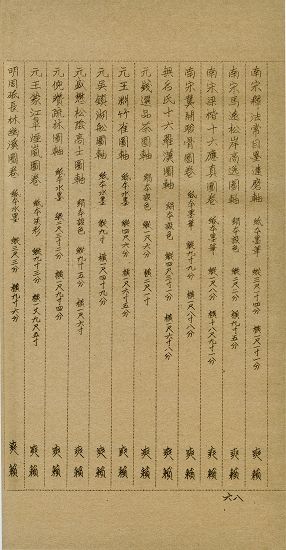 南宋釋法常目墨達磨軸 紙本墨筆 縱三尺一寸 橫一尺一寸一分
南宋馬遠松岸高逸圖軸 絹本設色 縱二尺 橫九寸五分
南宋梁楷十六應真圖卷 紙本墨筆 縱一尺 橫十八尺九寸二分
南宋龔開駿骨圖卷 紙本墨筆 縱九寸九分 橫一尺八寸八分
無名氏十六羅漢圖軸 絹本設色 縱四尺三寸二分 橫一尺六寸八分
元錢選品茶圖軸 絹本設色 縱三尺 橫一尺一寸
元王淵竹雀圖軸 紙本水墨 縱四尺六分 橫一尺六寸五分
元吳鎮湖船圖軸 紙本水墨 縱九寸 橫一尺四寸九分
元盛懋松蔭高士圖軸 絹本設色 縱九寸五分 橫一尺六寸
元倪瓚疏林圖軸 紙本水墨 縱二尺三寸三分 橫一尺九寸四分
元王蒙江皋煙嵐圖卷 紙本淡彩 縱九寸三分 橫又九尺五寸
明周砥長林幽溪圖卷 紙本水墨 縱三尺三分 橫九寸六分
爽籟
爽籟
爽籟
爽籟
爽籟
爽籟
爽籟
爽籟
爽籟
爽籟
爽籟
爽籟
六八